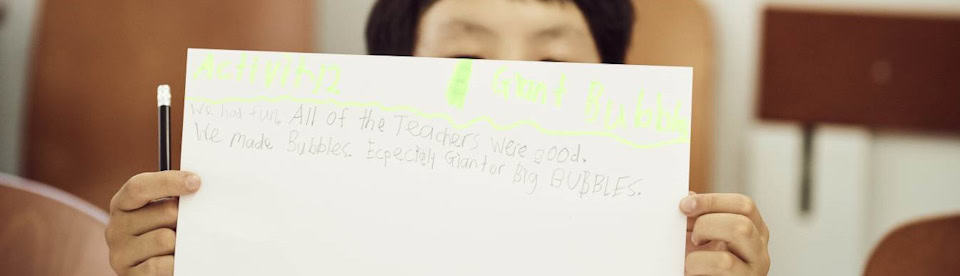 Activity 2 Giant Bubble
We had fun. All of the Teachers were good.
We made Bubbles. Especiely Giant or Big BUBBLES.